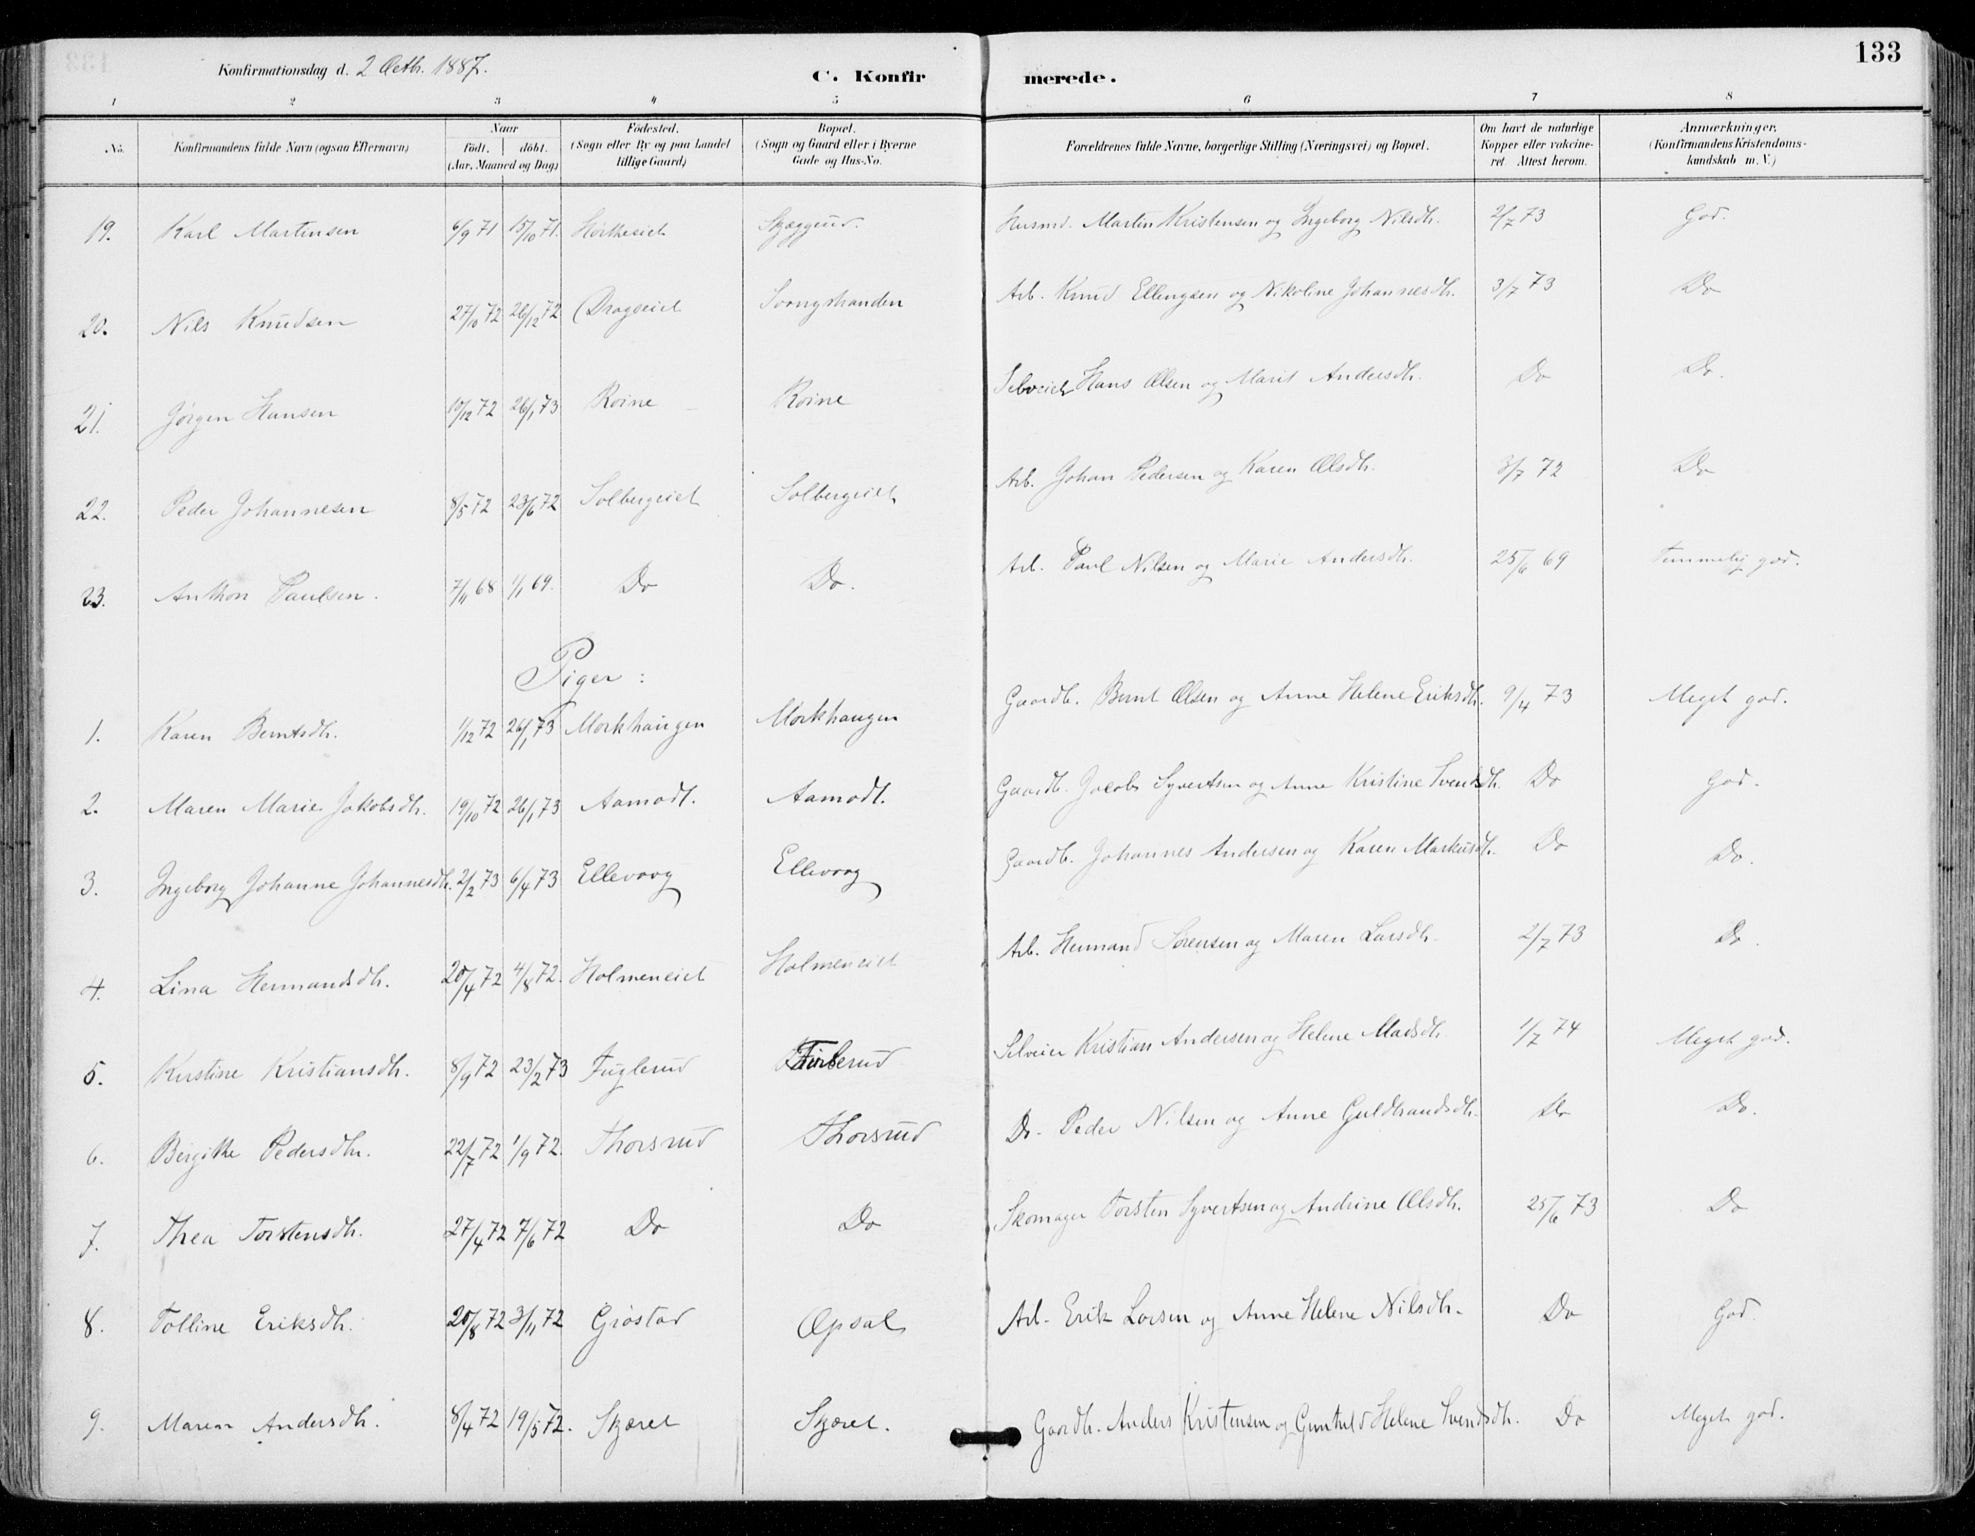 133
Konfirmationsdag d. 2 Octb. 1887.
C. Konfirmerede.
1 2 3 4 5 6 7 8
No. Konfirmandens fulde Navn (ogsaa Efternavn) Naar født. døbt. (Aar, Maaned og Dag) Fødested. (Sogn eller By og paa Landet tillige Gaard) Bopæl. (Sogn og Gaard eller i Byerne Gade og Hus-No. Forældrenes fulde Navne, borgerlige Stilling (Næringsvei) og Bopæl. Om havt de naturlige Kopper eller vakcineret. Attest herom. Anmærkninger. (Konfirmandens Kristendomskundskab m. V.)
19. Karl Martinsen 6/9 71 15/10 71. Skjæggerud. Husmd. Martin Kristensen og Ingeborg Nilsdtr. 2/7 73 God.
20. Nils Knudsen 27/10 72 26/12 72 Dragseiet Svangstranden Arb. Knud Ellingsen og Nikoline Johannesdtr. 3/7 73 Do
21. Jørgen Hansen 10/12 72 26/1 73 Roine Roine Selveier Hans Olsen og Marit Andersdtr. Do Do.
22. Peder Johannesen 8/5 72 23/6 72 Solbergeiet Solbergeiet Arb. Johan Pedersen og Karen Olsdtr. 3/7 72 Do
23. Anthon Paulsen. 7/11 68 1/1 69. Do Do. Arb. Paul Nilsen og Marie Andersdtr. 25/6 69 Temmelig god.
Piger:
1. Karen Berntsdtr. 1/12 72 26/1 73 Morkhaugen Morkhaugen Gaardb. Bernt Olsen og Anne Helene Eriksdtr. 9/4 73 Meget god.
2. Maren Marie Jakobsdtr. 19/10 72 26/1 73 Aamodt. Aamodt. Gaardb. Jacob Syvertsen og Anne Kristine Svendsdtr. Do God.
3. Ingeborg Johanne Johannesdtr. 2/2 73 6/4 73 Ellevaag Ellevaag Gaardb. Johannes Andersen og Karen Markusdtr. Do Do.
4. Lina Hermandsdtr. 20/4 72 4/8 72. Holmeneiet Holmeneiet Arb. Hermand Sørensen og Maren Larsdtr. 2/7 73 Do.
5. Kirstine Kristiansdtr. 8/9 72 23/2 73 Fuglerud Selveier Kristian Andersen og Helene Madsdtr. 1/7 74 Meget god.
6. Bergitte Pedersdtr. 22/7 72 1/9 72. Thorsrud Thorsrud Do. Peder Nilsen og Anne Guldbrandsdtr. Do Do.
7. Thea Torstensdtr. 27/4 72 7/6 72 Do Do Skomager Torsten Syvertsen og Andrine Olsdtr. 25/6 73 Do
8. Tolline Eriksdtr. 20/8 72 3/11 72 Grøstad Opsal Arb. Erik Larsen og Anne Helene Nilsdtr. Do God.
9. Maren Andersdtr. 8/4 72 19/5 72. Skjæret Skjæret. Gaardb. Anders Kristensen og Gunhild Helene Svendsdtr. Do Meget god.